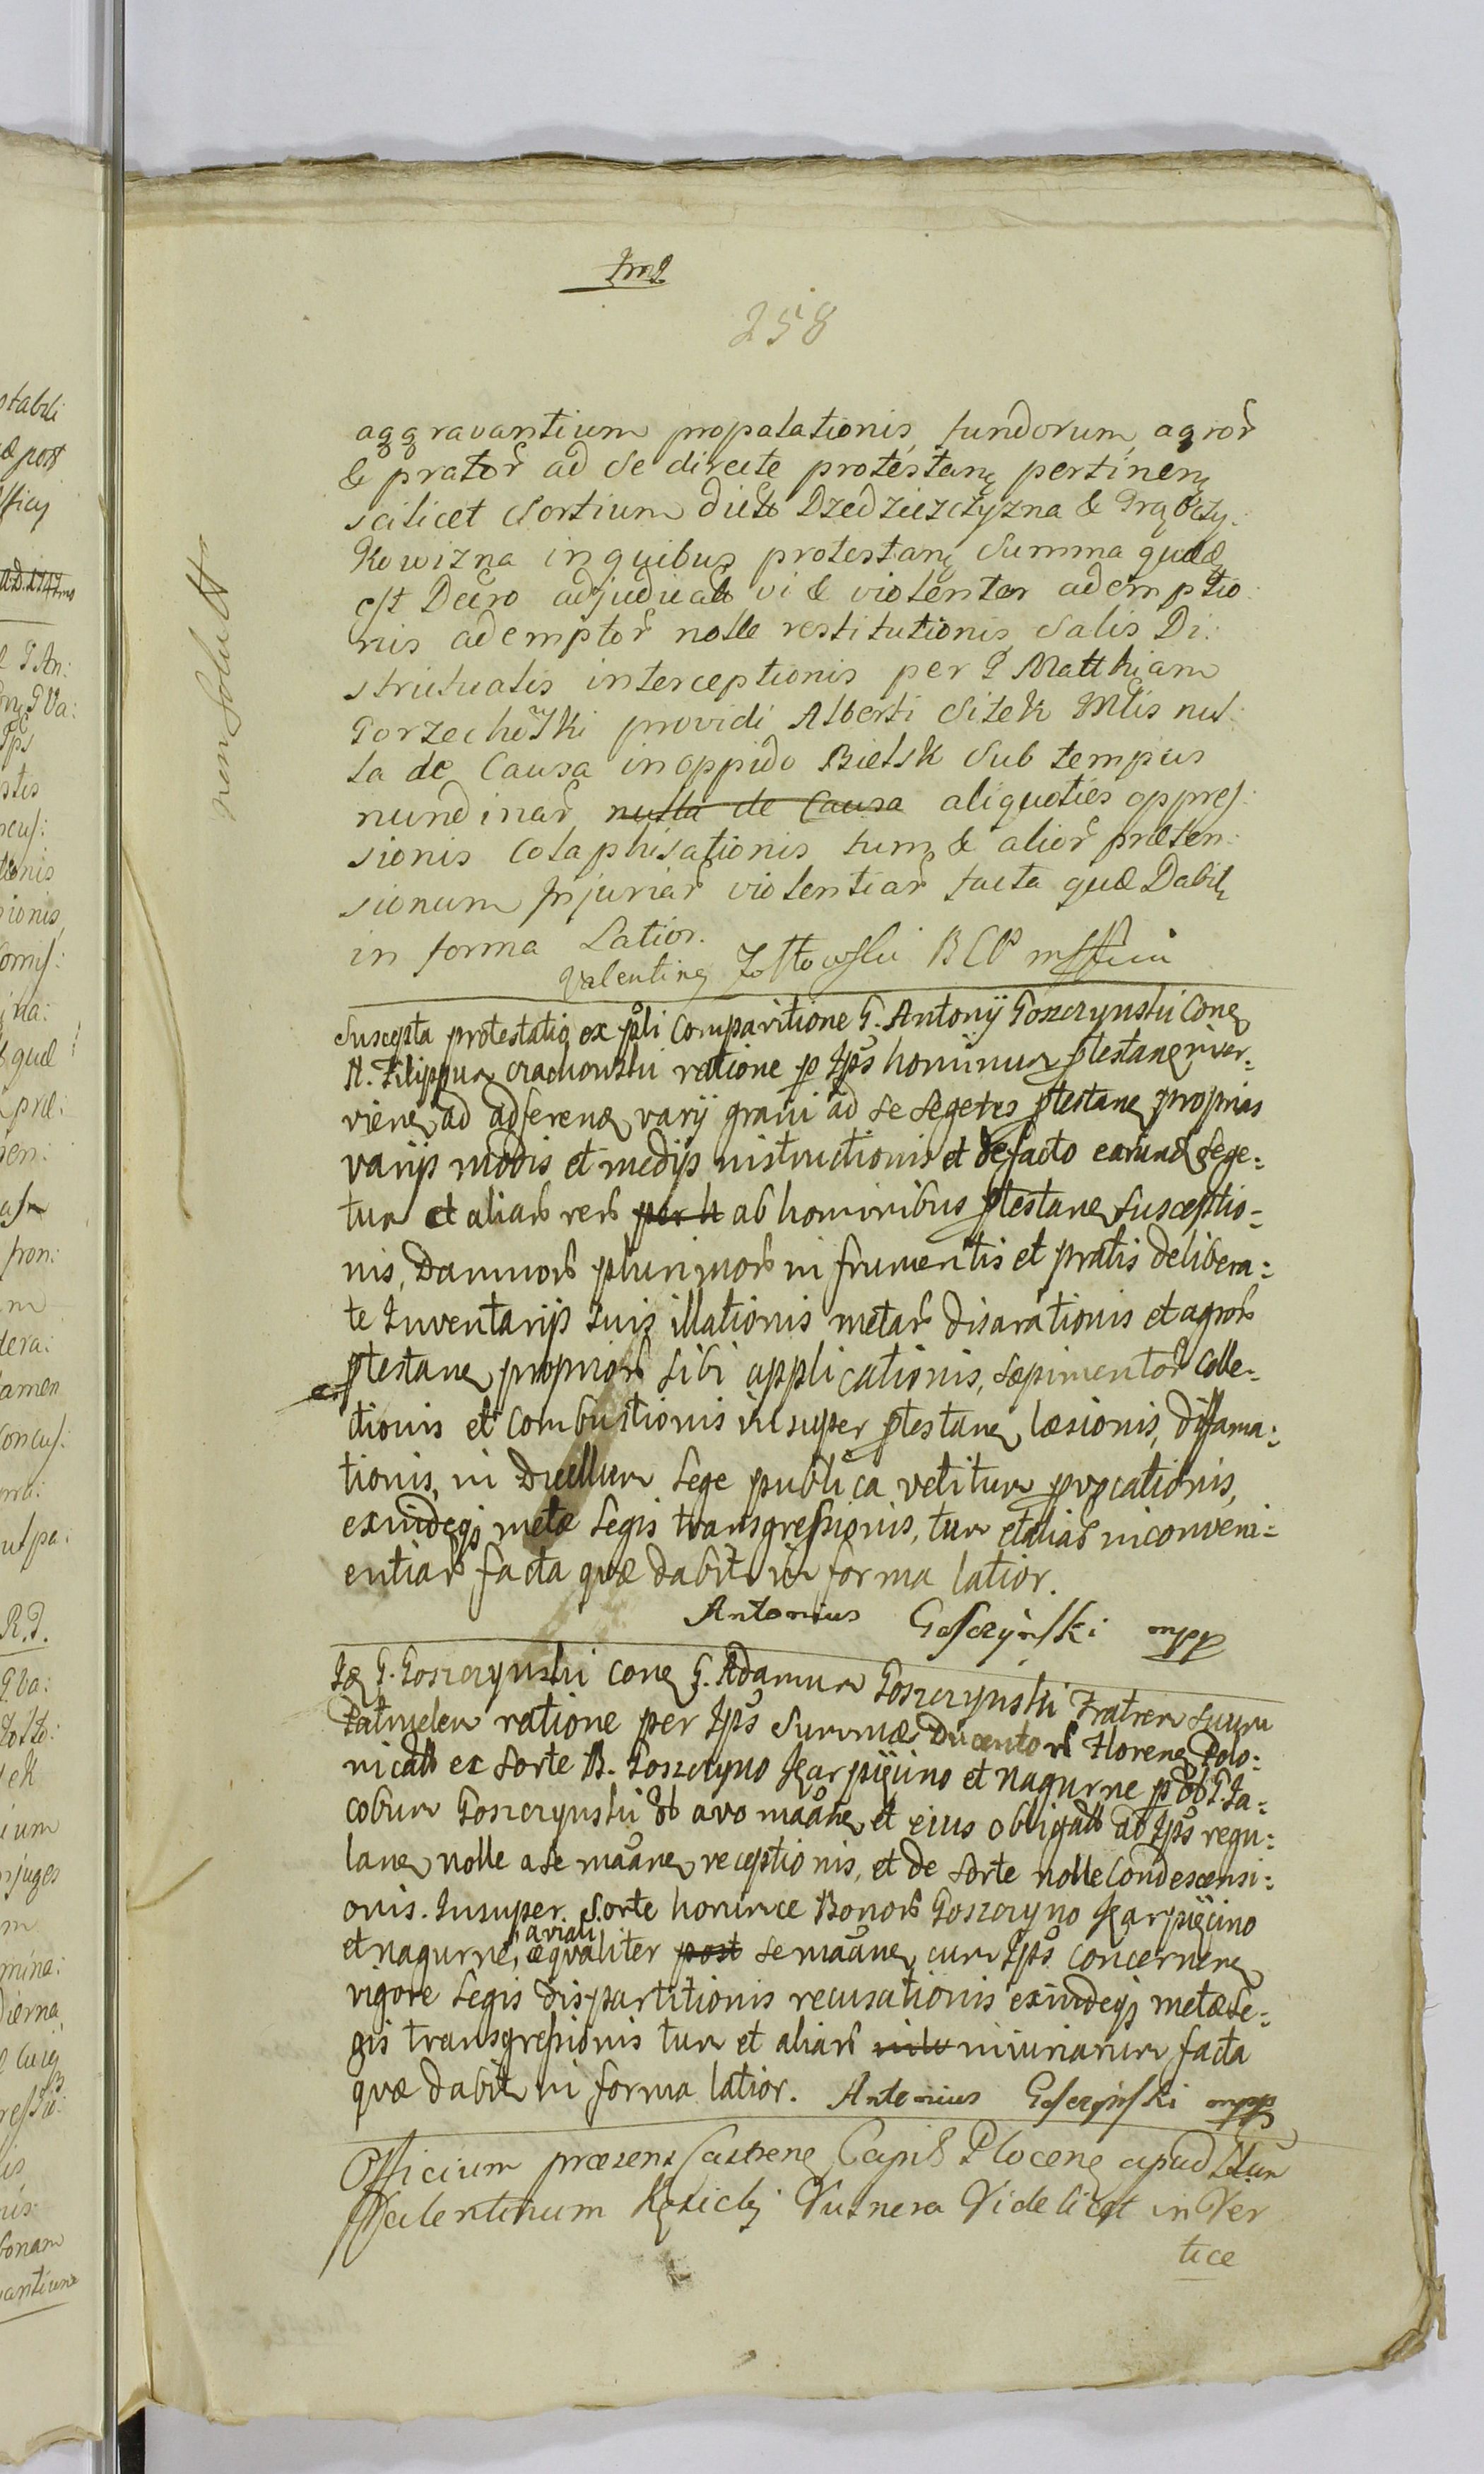 258
aggravantium propalationis fundorum agror
& prator ad se directe protestan pertinen
scilicet Sortium dict Dzedziezczyzna & Grąbczy.
Kowizna in quibus protestan Summa quædą
est Decro adjudicat vi & violenter ademptio:
nis ademptor nolle restitutionis Salis Di:
strictualis interceptionis per G Matthiam
Gorzechowski providi Alberti Sitek Mtis nul:
la de Causa in oppido Bielsk Sub tempus
nundinar nulla de Causa aliquoties oppres:
sionis Colaphisationis tum & alior præten:
sionum Injuriar violentiar facta quæ Dabit
in forma Latior.
Valentinq Zołtowski BCP mpp
non solvit
Suscepta protestatio ex psli Comparitione G. Antonij Goszczynski Con
N. Filippum Crachowski ratione p Ips hominum ptestan inver:
vien ad adferend varij grani ad se segetes ptestan proprias
varijs modis et medijs instructionis et de facto earund sege:
tum et aliar rer per h ab hominibus ptestan susceptio:
nis, Damnor plurimor in frumentis et pratis delibera:
te Inventarijs suis illationis metar disarationis et agror
ptestan proprior sibi applicationis, sæpimentor Colle:
ctionis et Combustionis insuper ptestan læsionis, diffama:
tionis, in Duellum Lege publica vetitum pvocationis,
exindeq metæ Legis transgressionis, tum et aliar inconveni:
entiar facta quæ dabit in forma latior.
Antonius Gosczyński mpp
Id G. Goszczynski Con G. Adamum Goszczynski Fratrem Suum
Patruelem ratione per Ips Summæ Ducentor Floren Polo:
nicalt ex Sorte B. Goszczyno Karpięcino et Nagurne p ol G. Ja:
cobum Goszczynski ol avo maan et eius obligat ad Ips regu:
lan nolle a se maan receptionis, et de Sorte nolle Condescensi:
onis. Insuper Sorte hominice Bonor Goszczyno Karpięcino
et Nagurne, aviali æqualiter post se maan cum Ips concernen
vigore Legis dispartitionis recusationis exindeq metæ Le:
gis transgressionis tum et aliar iniuriarum facta
quæ dabit in forma latior. Antonius Gosczyński mpp
Officium præsens Castren Capit Plocen apud
Valentinum Vulnera Videlicet in Ver
tice